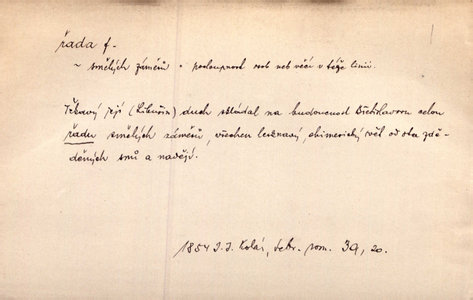 řada f.
~ smělých záměrů = posloupnost osob neb věcí v téže linii.
Těkavý její (Libušin) duch skládal na budoucnost Břetislavovu celou
řadu smělých záměrů, všechen lesknavý, chimerický svět od otce zdě-
děných snů a nadějí.
1854 J. J. Kolár, sebr. rom. 39, 20.